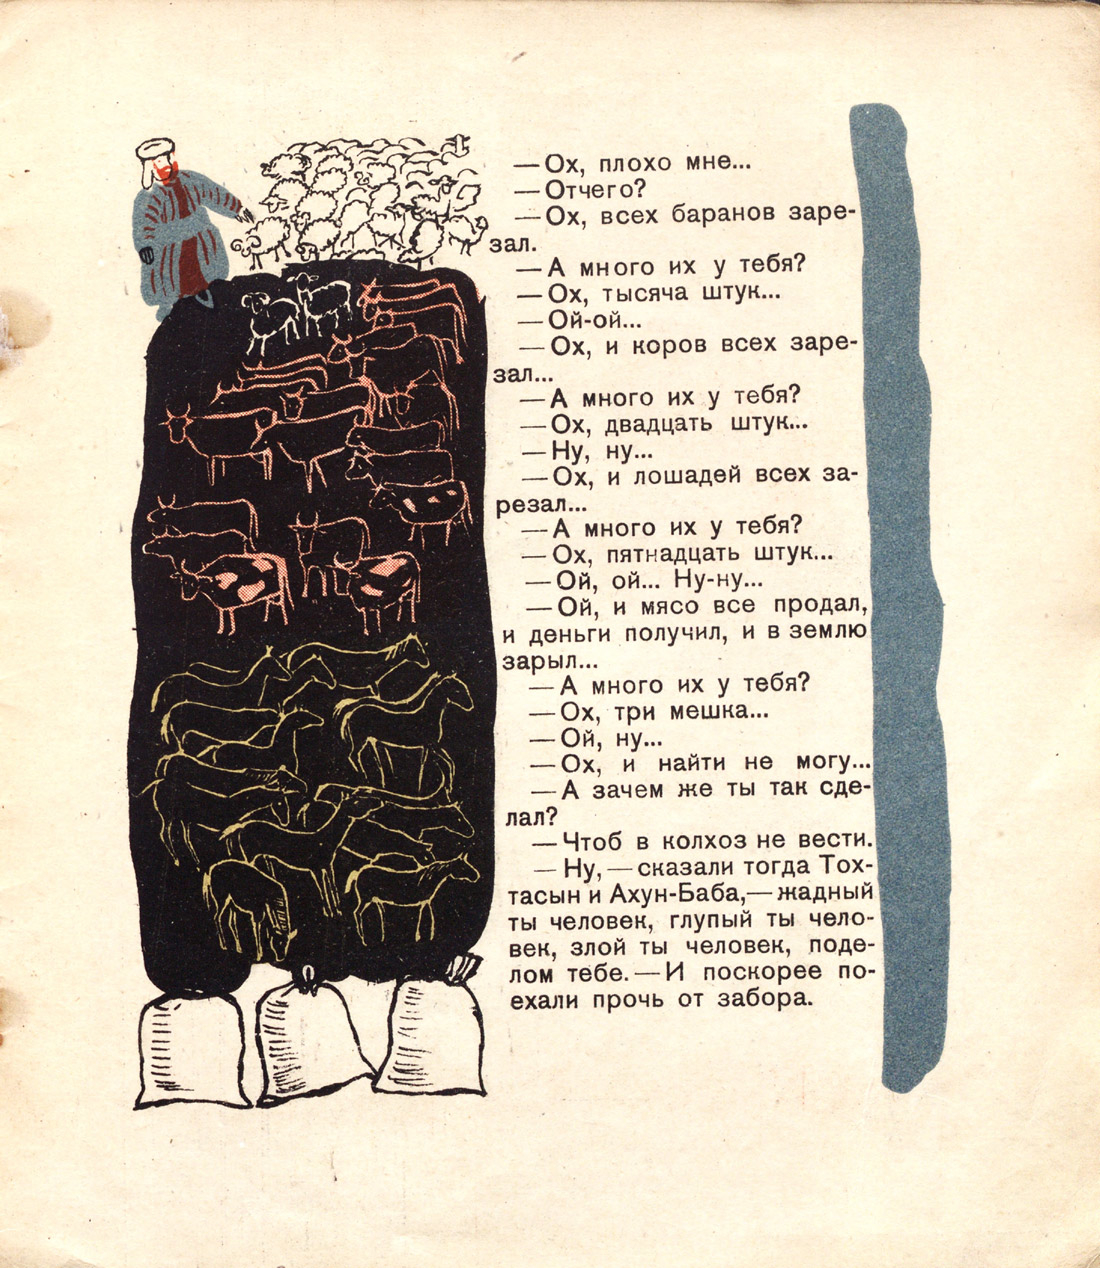 — Ох, плохо мне...
— Отчего?
— Ох, всех баранов заре-
зал.
— А много их у тебя?
— Ох, тысяча штук...
— Ой-ой...
— Ох, и коров всех заре-
зал...
— А много их у тебя?
— Ох, двадцать штук...
— Ну, ну...
— Ох, и лошадей всех за-
резал...
— А много их у тебя?
— Ох, пятнадцать штук...
— Ой, ой... Ну-ну...
— Ой, и мясо все продал,
и деньги получил, и в землю
зарыл...
— А много их у тебя?
— Ох, три мешка...
— Ой, ну...
— Ох, и найти не могу...
— А зачем же ты так сде-
лал?
— Чтоб в колхоз не вести.
— Ну, — сказали тогда Тох-
тасын и Ахун-Баба, — жадный
ты человек, глупый ты чело-
век, злой ты человек, поде-
лом тебе. — И поскорее по-
ехали прочь от забора.